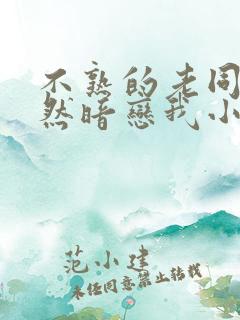 不熟的老同
然暗戀我小
范小建
未经同意禁止转载